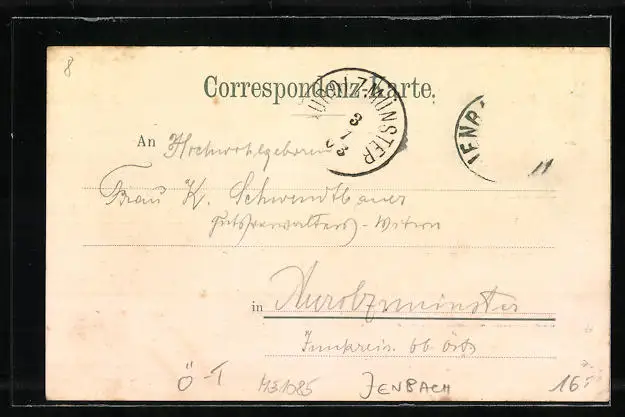 8
Correspondenz-Karte.
AUROLZMÜNSTER
3 7 03
JENB
An Hochwohlgeboren
Frau K. Schwendtbauer
Gutsverwalters-Witwe
in Aurolzmünster
Innkreis. Ob Öst
Ö-T
JENBACH
16: